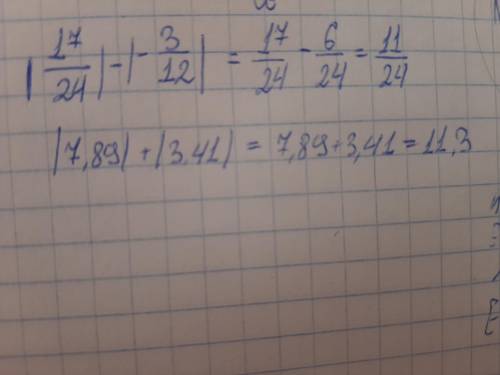 |17/24| - |-3/12| = 17/24 - 6/24 = 11/24
|7,89| + |3.41| = 7,89+3,41 = 11,3